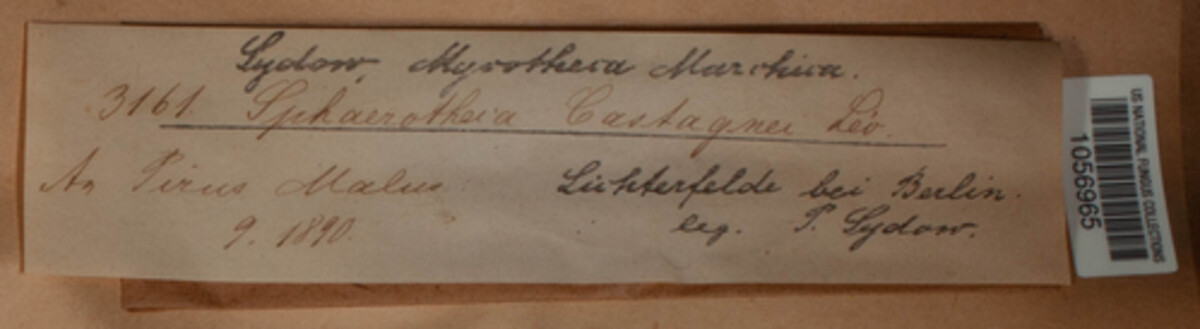 Sydow, Mycotheca Marchica.
3161. Sphaerotheca Castagnei Lév.
An Pirus Malus
Lichterfelde bei Berlin.
9. 1890.
leg. P. Sydow.
US NATIONAL FUNGUS COLLECTIONS
1056965